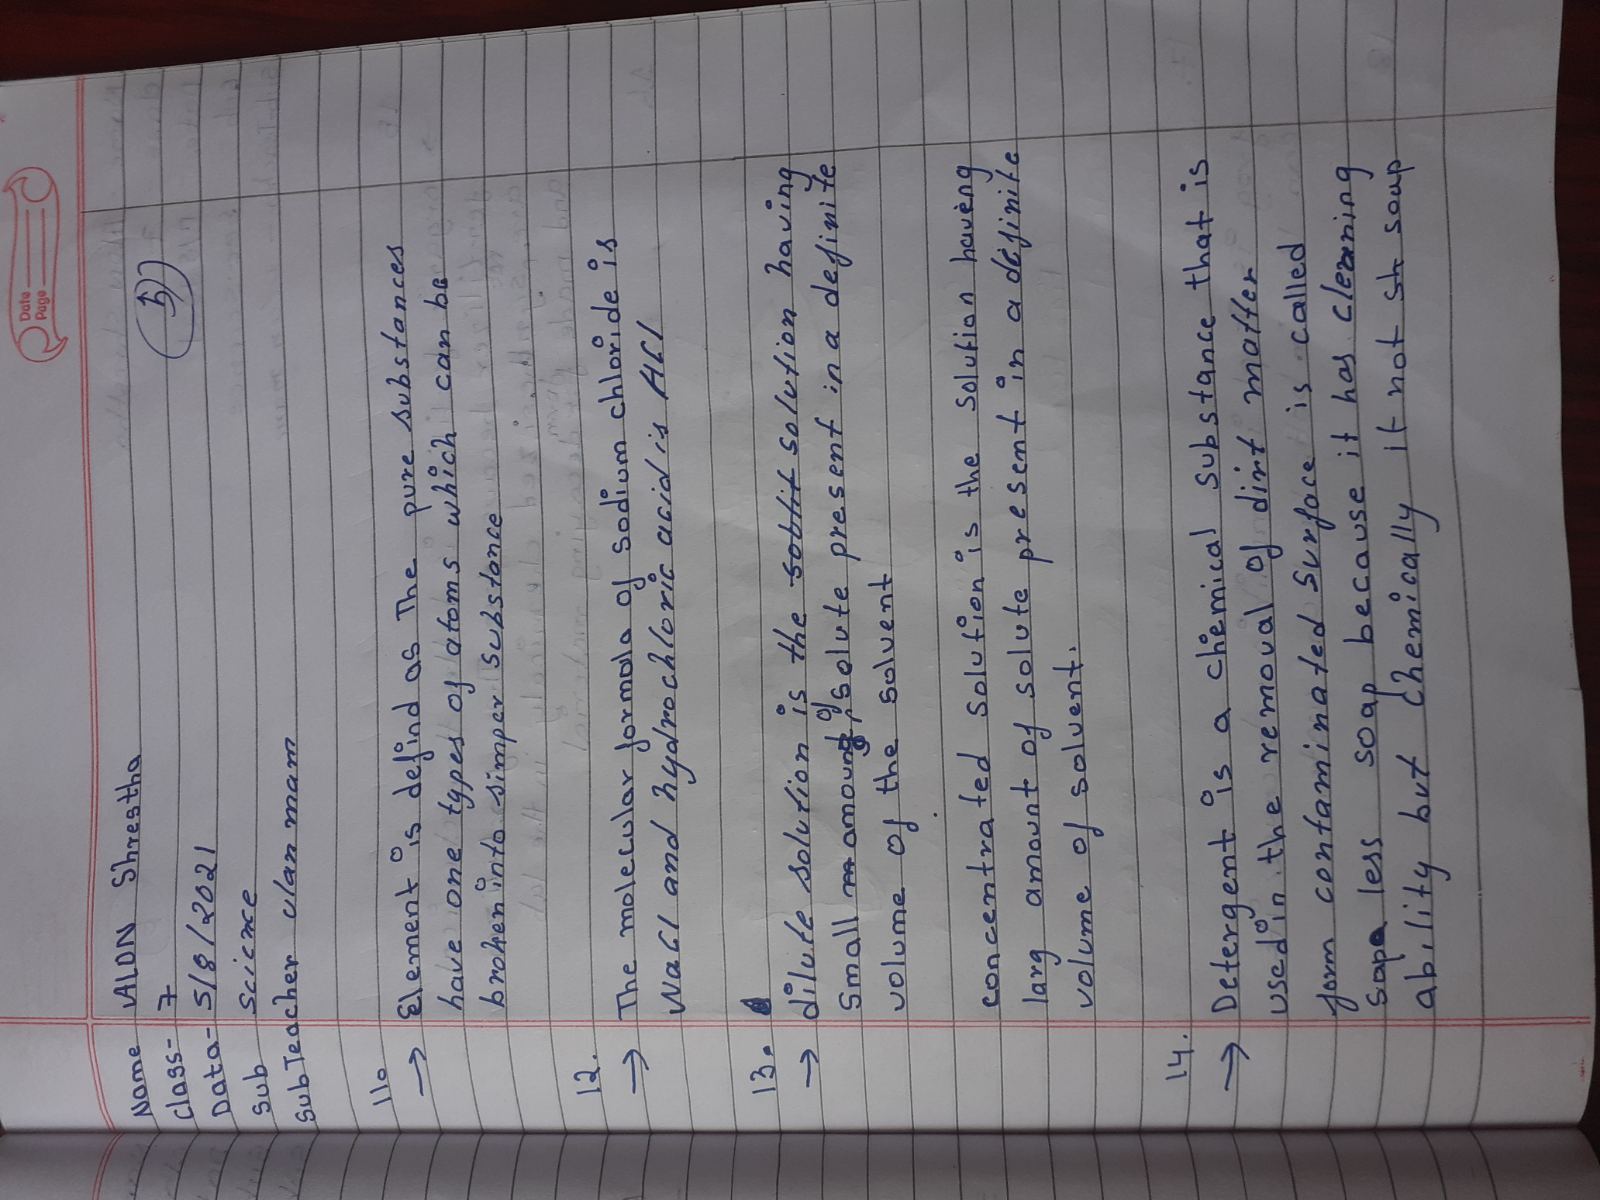 Date
Page
5
Name ALON Shrestha
Class- 7
Data- 5/8/2021
Sub Science
Sub Teacher mam
11.
→ Element is defind as The pure substances
have one types of atoms which can be
broken into simper substance
12.
→ The molecular formola of sodium chloride is
NaCl and hydrochloric acid is HCl
13.
→ dilute solution is the solution having
Small amount of solute present in a definite
volume of the solvent
concentrated solution is the solution having
larg amount of solute present in a definite
volume of solvent.
14.
→ Detergent is a chemical substance that is
used in the removal of dirt matter
form contaminated surface is called
Sope less soap because it has clening
ability but chemically it not soap